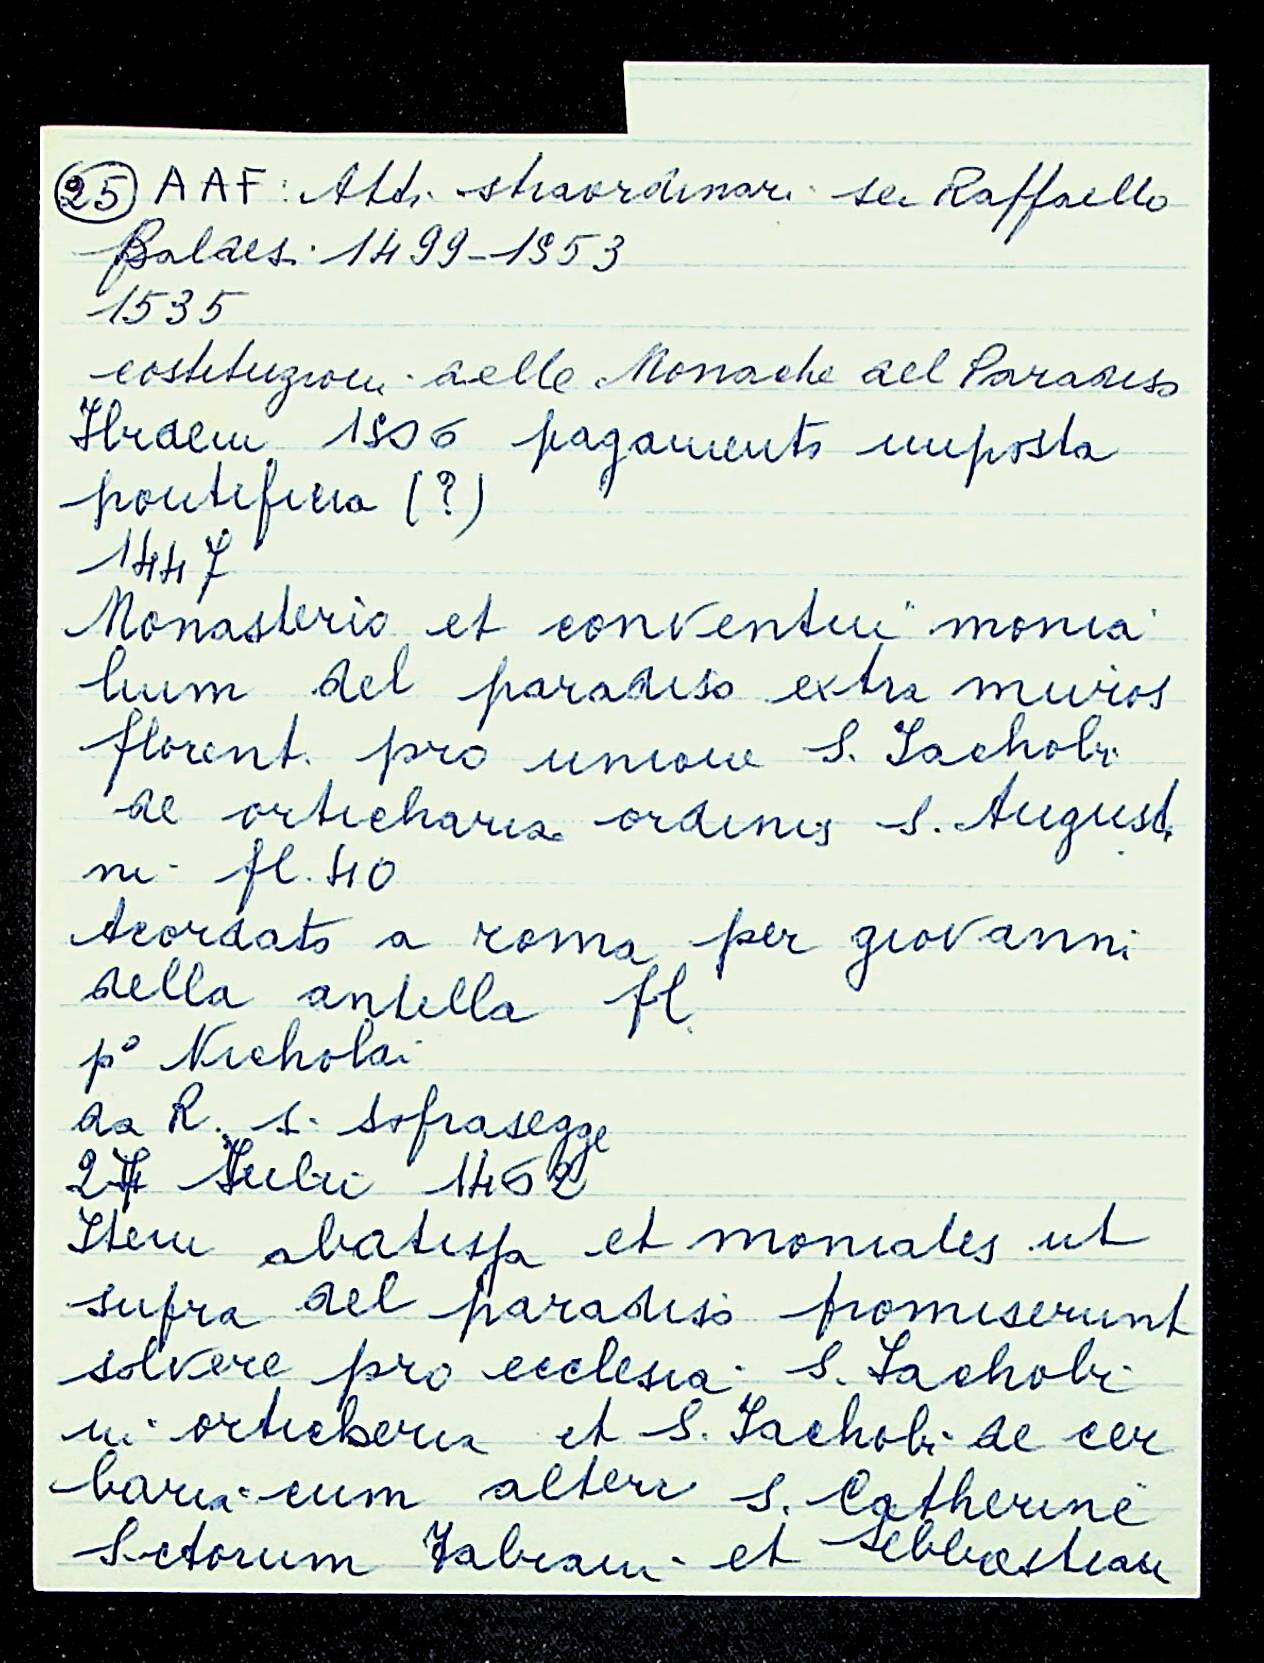 25 AAF: Atti straordinari ser Raffaello
Baldesi 1499-1553
1535
costituzioni delle Monache del Paradiso
Ibidem 1506 pagamento imposta
pontificia (?)
1447
Monasterio et conventui monia
lium del paradiso extra muros
florent. pro unione S. Iachobi
de orticharia ordinis S. Augusti
ni fl. 40
Acordato a roma per giovanni
della antella fl.
p° Nicholai
da R. s. sofrasegge
27 Iulii 1462
Item abatissa et moniales ut
supra del paradiso promiserunt
solvere pro ecclesia S. Iachobi
in orticheria et S. Iachobi de cer
baria cum alteri S. Catherine
Sctorum Fabiani et Sebbastiani